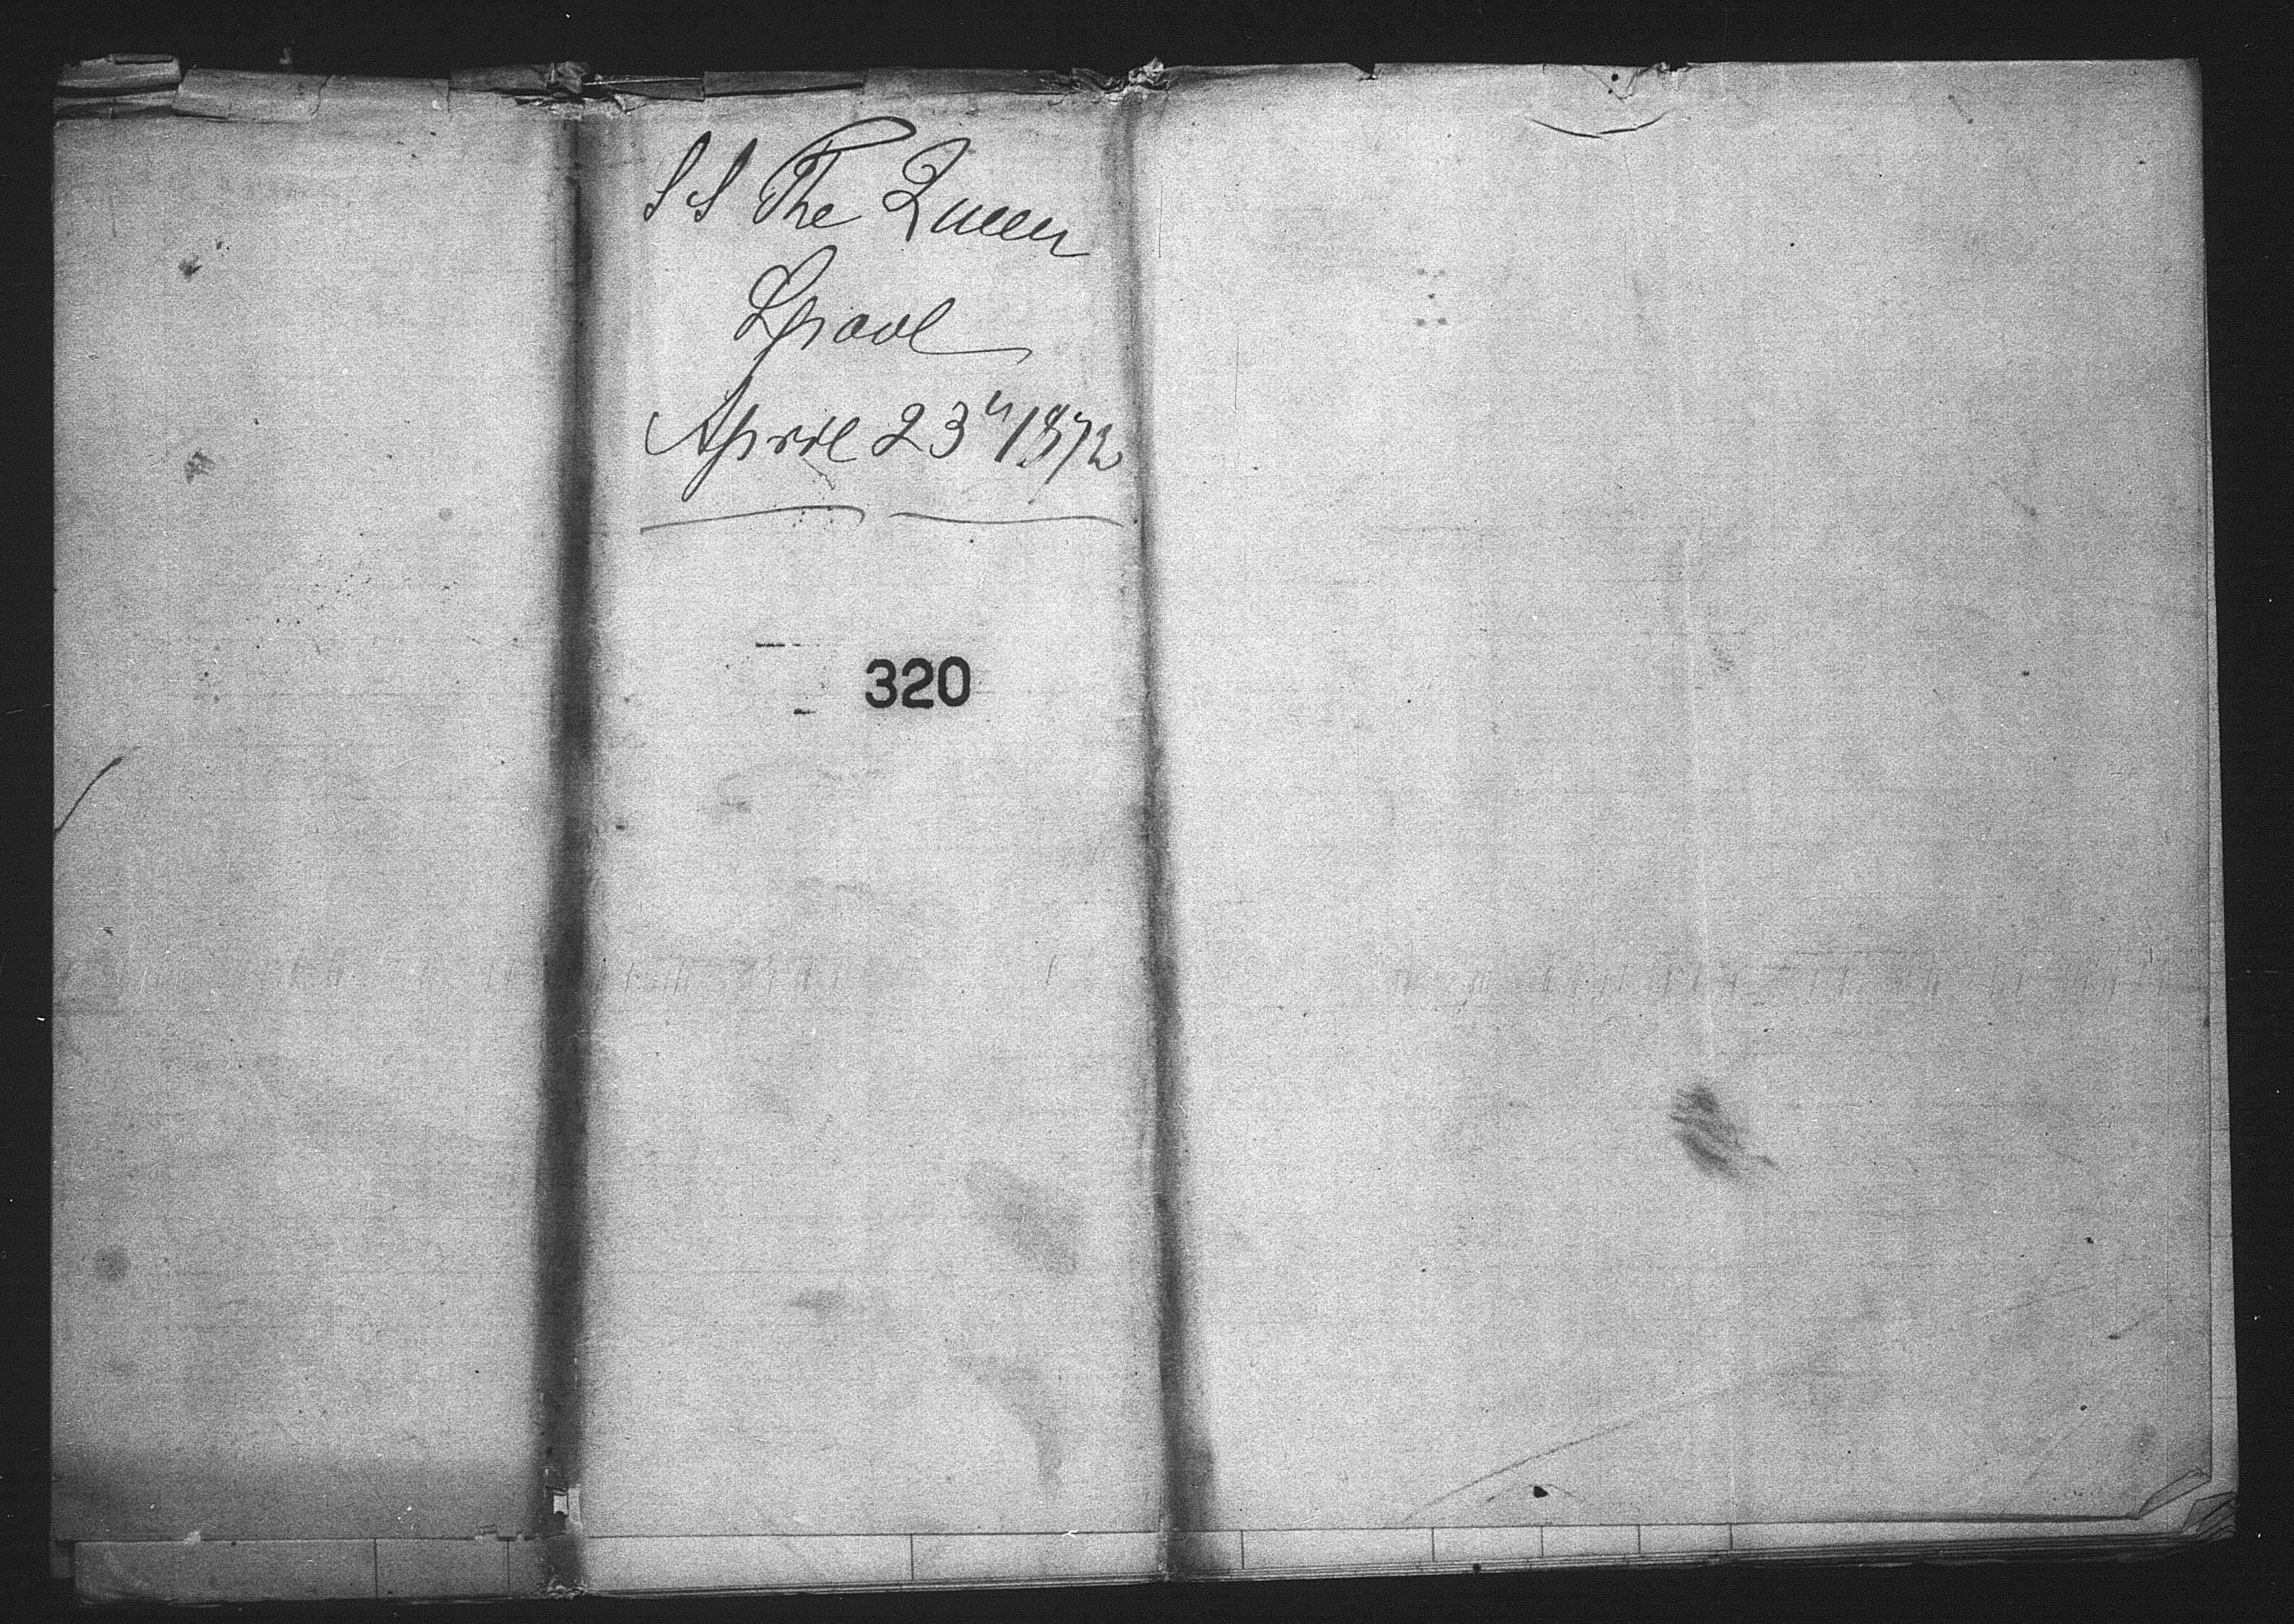 SS The Queen
Lpool
April 23" 1872
320